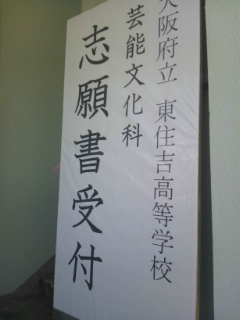 大阪府立 東住吉高等学校
芸能文化科
志願書受付